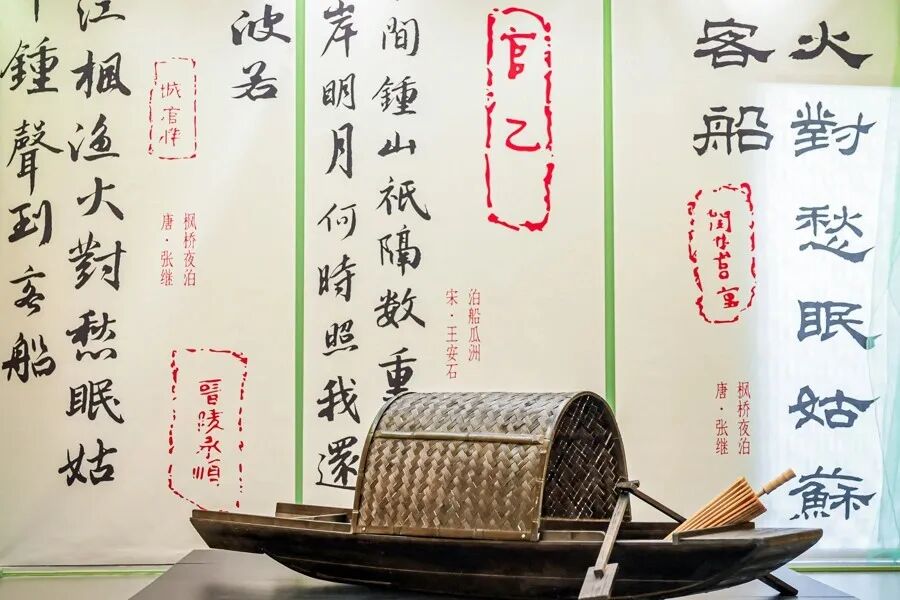 火對愁眠姑蘇
客船
枫桥夜泊
唐·张继
官乙
泊船瓜洲
宋·王安石
間鍾山祇隔数重
岸明月何時照我還
波若
枫桥夜泊
唐·张继
晋陵承順
江楓渔火對愁眠姑
鍾聲到客船